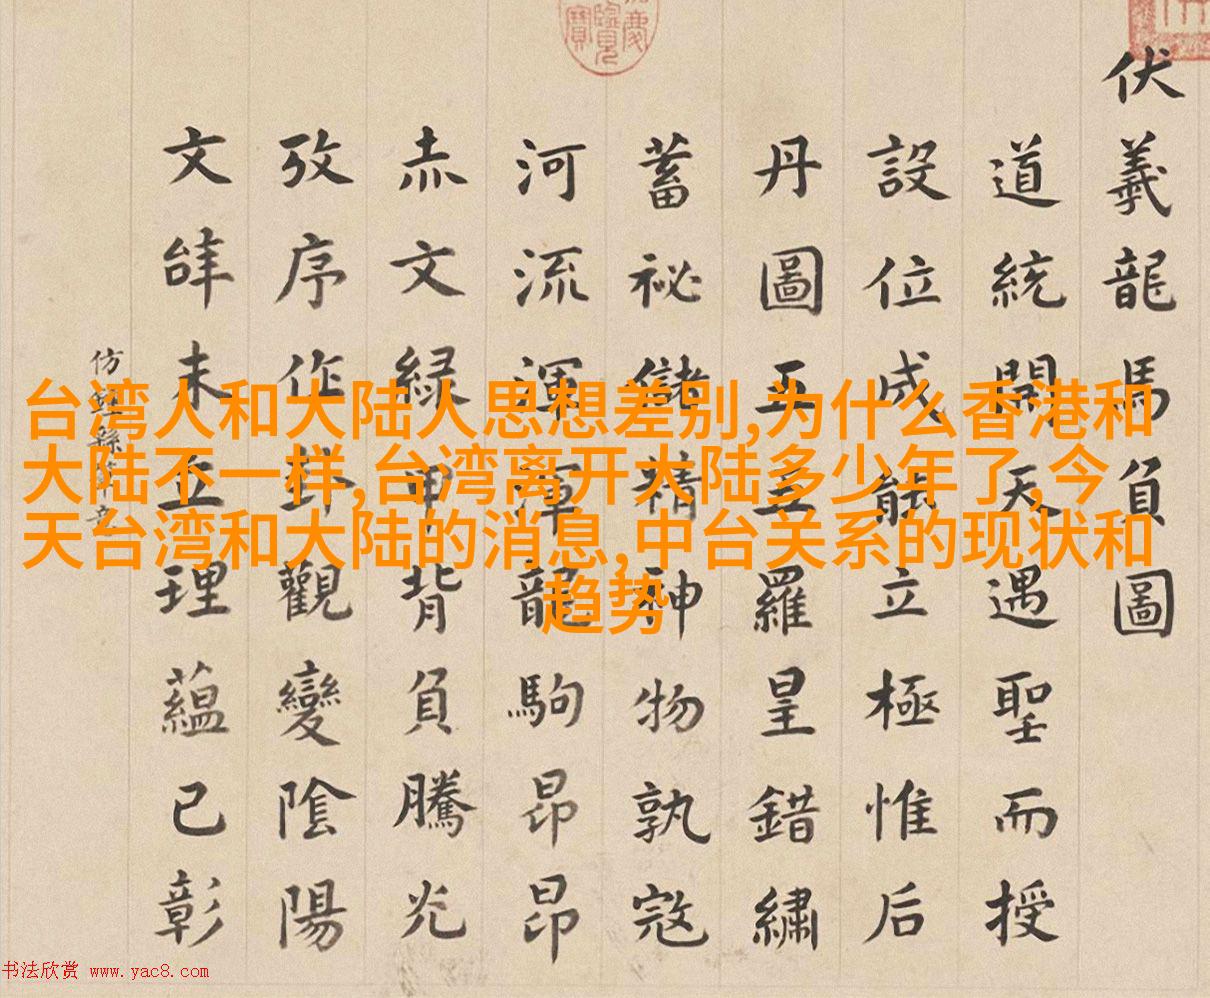 伏羲龍馬負圖
道統開天遇聖而授
設位成能立極惟后
丹圖五羅皇錯繡
蓄祕儲精神物孰寇
河流渾渾龍駒昂昂
赤文緑甲背負騰光
攷序作卦觀變陰陽
文辝未立理蘊已彰
仿
台湾人和大陆人思想差别,为什么香港和
大陆不一样,台湾离开大陆多少年了,今
天台湾和大陆的消息,中台关系的现状和
趋势
书法欣赏 www.yac8.com